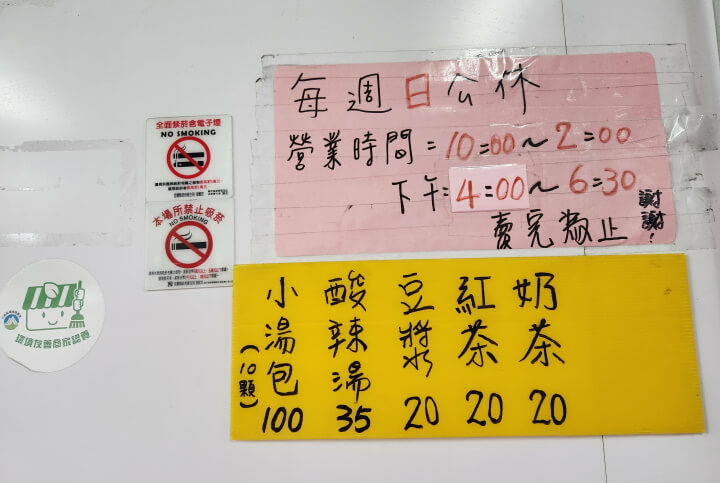 每週日公休
營業時間=10=00~2=00
下午=4=00~6=30
賣完為止
謝謝!
全面禁菸含電子煙
NO SMOKING
本場所禁止吸菸
NO SMOKING
環境友善商家認養
小湯包
(10顆)
100
酸辣湯
35
豆漿
20
紅茶
20
奶茶
20